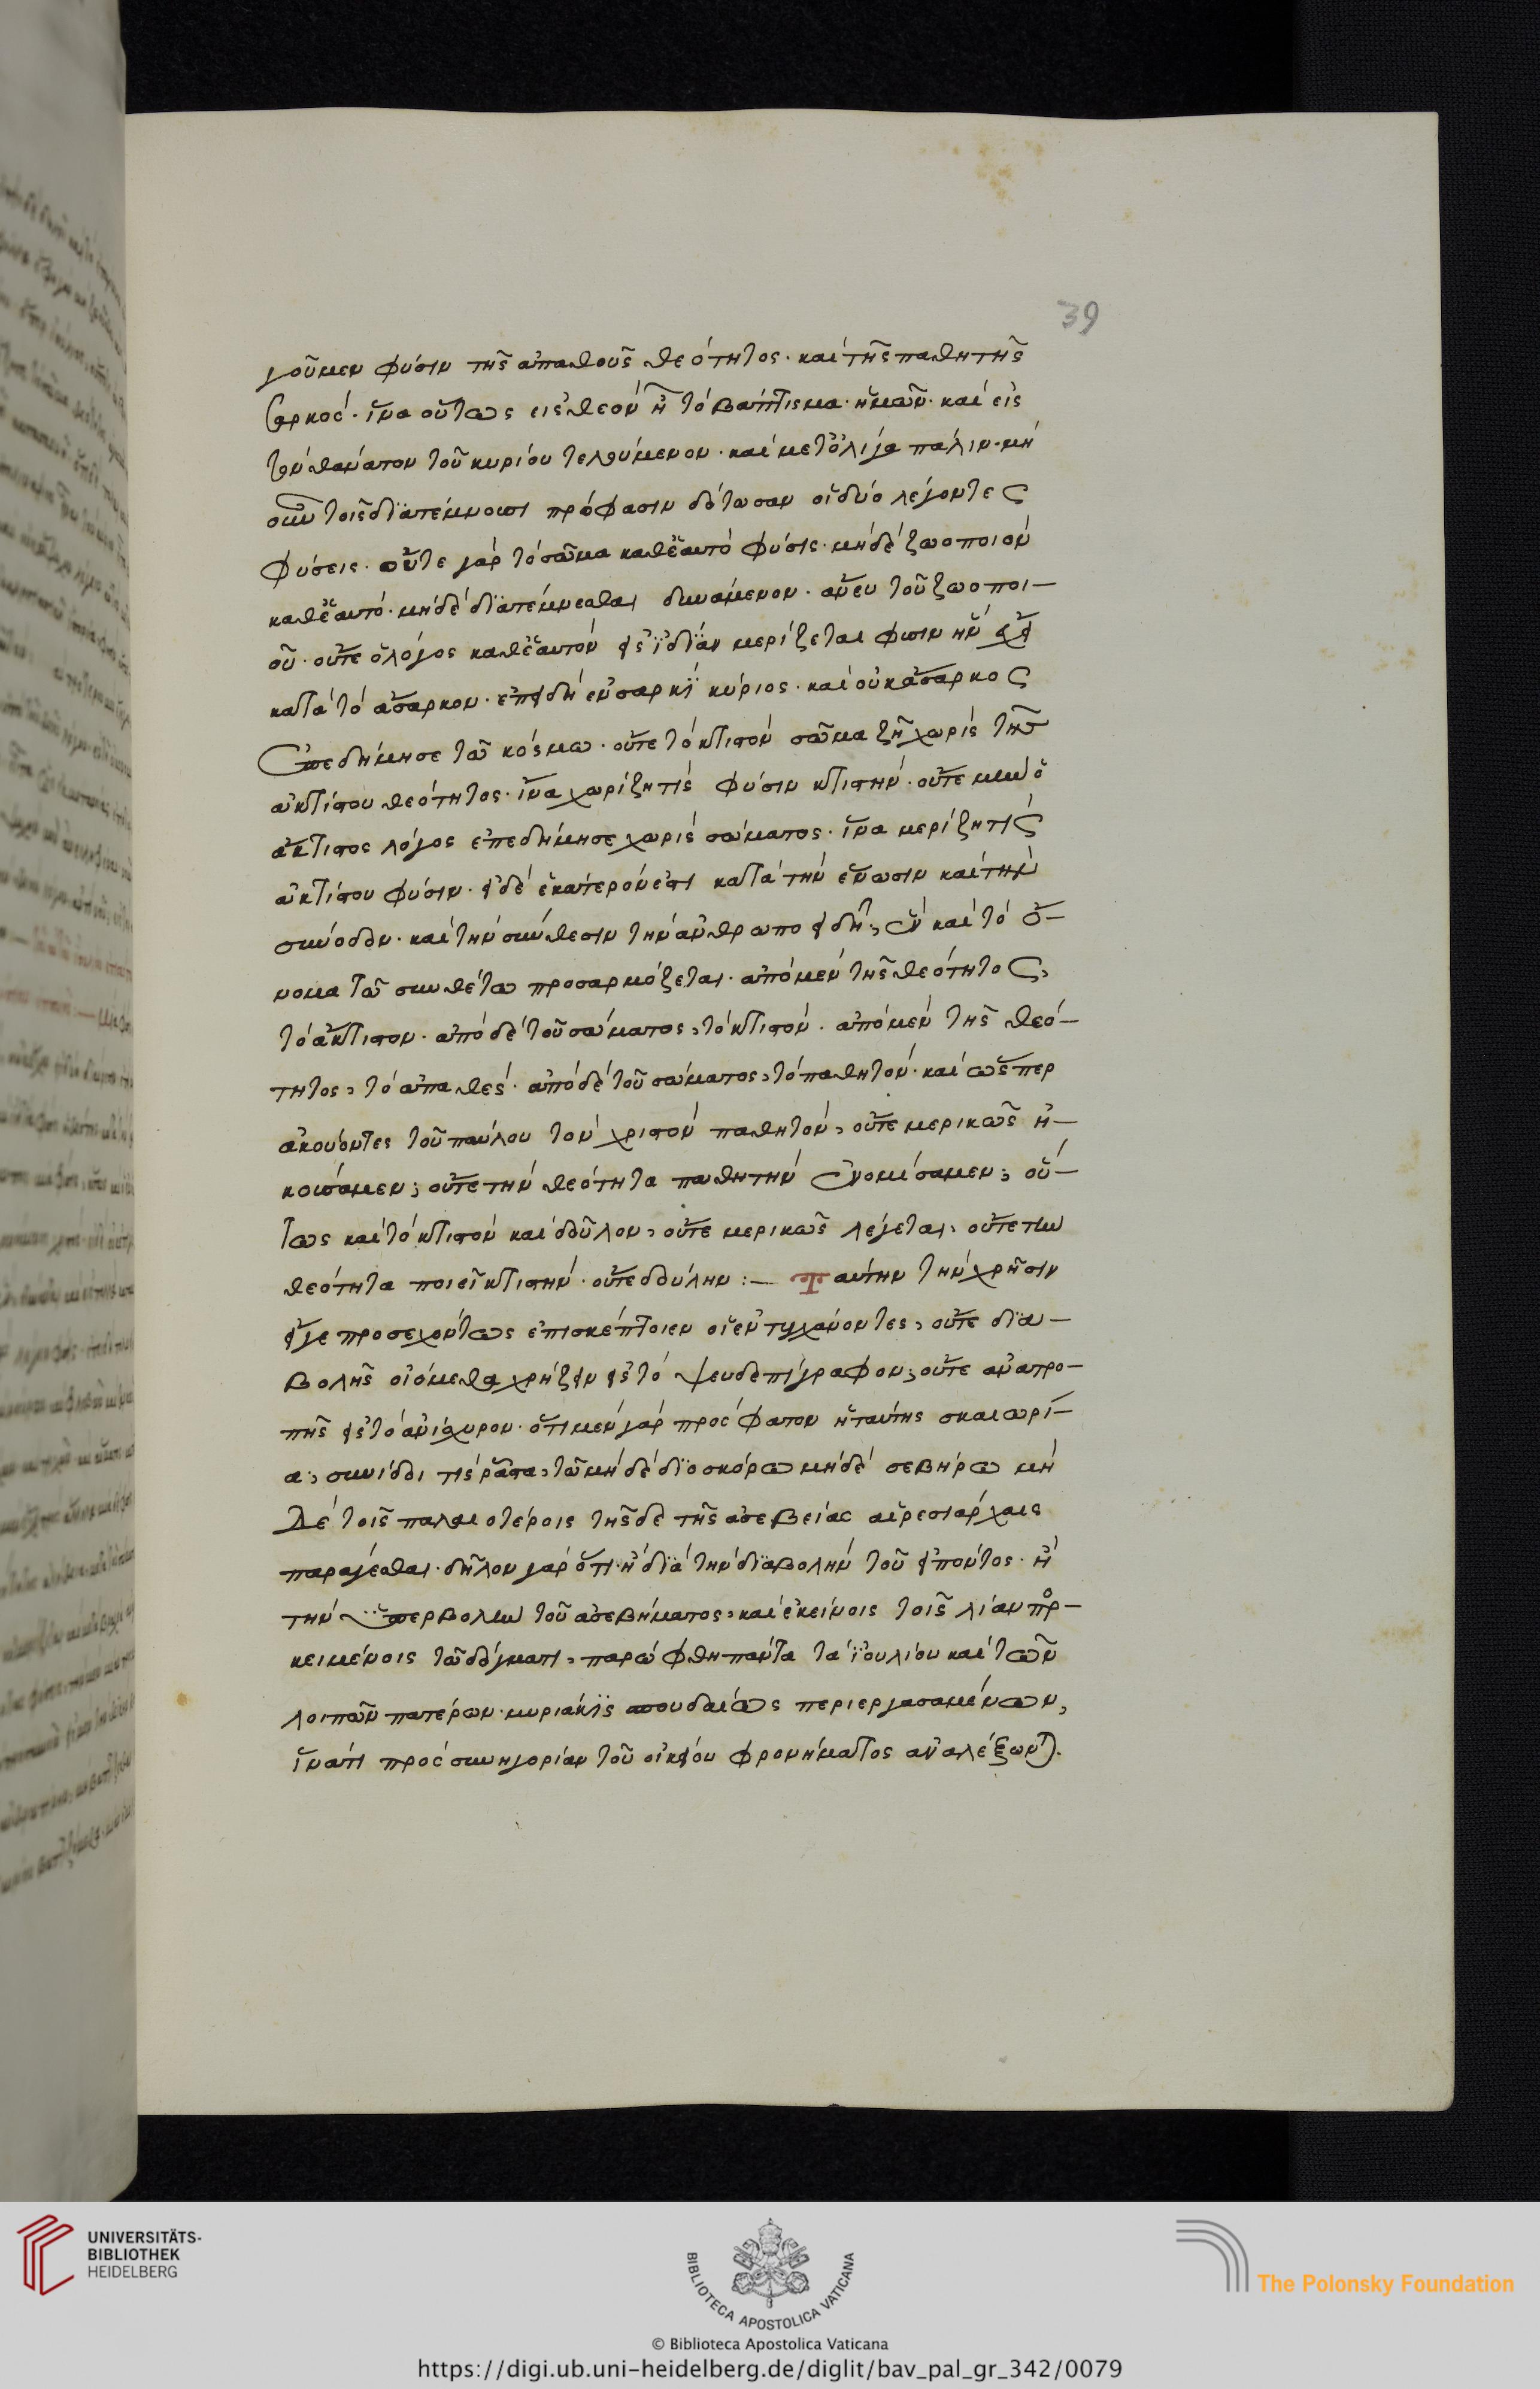 39
γοῦμεν φύσιν τῆς ἀπαθοῦς θεότητος· καὶ τῆς παθητῆς
σαρκός· ἵνα οὕτως εἰς θεὸν ᾖ τὸ βάπτισμα ἡμῶν· καὶ εἰς
τὸν θάνατον τοῦ κυρίου τελούμενον· καὶ μετ᾽ ὀλίγα πάλιν· μὴ
οὖν τοῖς διατέμνουσι πρόφασιν δότωσαν οἱ δύο λέγοντες
φύσεις· οὔτε γὰρ τὸ σῶμα καθ᾽ ἑαυτὸ φύσις· μὴ δὲ ζωοποιὸν
καθ᾽ ἑαυτό· μὴ δὲ διατέμνεσθαι δυνάμενον· ἄνευ τοῦ ζωοποι–
οῦ· οὔτε ὁ λόγος καθ᾽ ἑαυτὸν εἰς ἰδίαν μερίζεται φύσιν ἣν ἔχει
κατὰ τὸ ἄσαρκον· ἐπειδὴ ἐν σαρκὶ κύριος· καὶ οὐκ ἄσαρκος
ἐπεδήμησε τῶ κόσμω· οὔτε τὸ κτιστὸν σῶμα ζῆ χωρὶς τῆς
ἀκτίστου θεότητος· ἵνα χωρίζη τὶς φύσιν κτιστήν· οὔτε μὴν ὁ
ἄκτιστος λόγος ἐπεδήμησε χωρὶς σώματος· ἵνα μερίζη τὶς
ἀκτίστου φύσιν· εἰ δὲ ἑκάτερον ἐστι κατὰ τὴν ἕνωσιν καὶ τὴν
σύνοδον· καὶ τὴν σύνθεσιν τὴν ἀνθρωποειδῆ, ἓν καὶ τὸ ὄ–
νομα τῶ συνθέτω προσαρμόζεται· ἀπὸ μὲν τῆς θεότητος,
τὸ ἄκτιστον· ἀπὸ δὲ τοῦ σώματος, τὸ κτιστόν· ἀπὸ μὲν τῆς θεό–
τητος, τὸ ἀπαθές· ἀπὸ δὲ τοῦ σώματος, τὸ παθητόν· καὶ ὥσπερ
ἀκούοντες τοῦ παύλου τὸν χριστὸν παθητόν, οὔτε μερικῶς ἠ–
κούσαμεν, οὔτε τὴν θεότητα παθητὴν ἐνομίσαμεν, οὕ–
τως καὶ τὸ κτιστὸν καὶ δοῦλον, οὔτε μερικῶς λέγεται, οὔτε τὴν
θεότητα ποιεῖ κτιστήν· οὔτε δούλην :– Ταύτην τὴν χρῆσιν
εἴγε προσεχόντως ἐπισκέπτοιεν οἱ ἐντυγχάνοντες, οὔτε δια–
βολῆς οἰόμεθα χρήζειν εἰς τὸ ψευδεπίγραφον, οὔτε ἀνατρο–
πῆς εἰς τὸ ἀνίσχυρον· ὅτι μὲν γὰρ πρόσφατον ἡ ταύτης σκαιωρί–
α, συνίδοι τὶς ῥᾶστα, τῶ μὴ δὲ διοσκόρω μὴ δὲ σεβήρω μὴ
δὲ τοῖς παλαιοτέροις τῆς δε τῆς ἀσεβείας αἱρεσιάρχαις
παράγεσθαι· δῆλον γὰρ ὅτι· ἢ διὰ τὴν διαβολὴν τοῦ εἰπόντος· ἢ
τὴν ὑπερβολὴν τοῦ ἀσεβήματος, καὶ ἐκείνοις τοῖς λίαν προ–
κειμένοις τῶ δόγματι, παρώφθη πάντα τὰ ἰουλίου καὶ τῶν
λοιπῶν πατέρων· μυριάκις σπουδαίως περιεργασαμένων,
ἵνά τι πρὸς συνηγορίαν τοῦ οἰκείου φρονήματος ἀναλέξωνται.
UNIVERSITÄTS-
BIBLIOTHEK
HEIDELBERG
BIBLIOTECA APOSTOLICA VATICANA
The Polonsky Foundation
© Biblioteca Apostolica Vaticana
https://digi.ub.uni-heidelberg.de/diglit/bav_pal_gr_342/0079